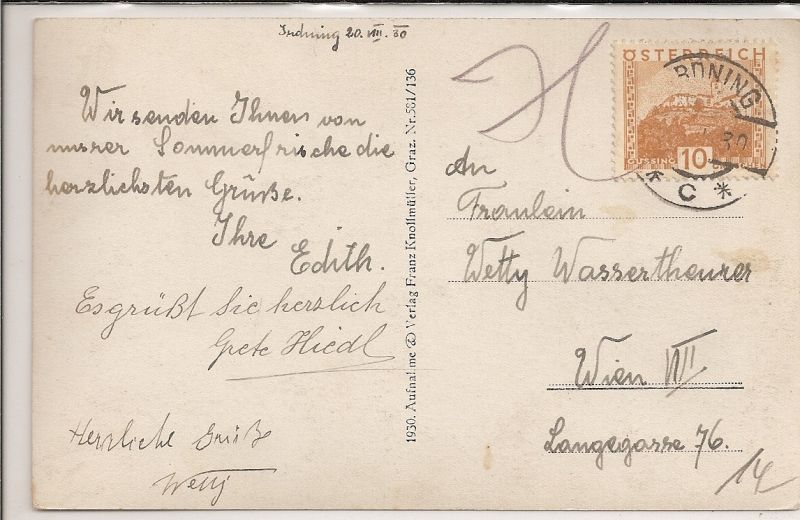 Irdning 20. VIII. 30
Wir senden Ihnen von
unsrer Sommerfrische die
herzlichsten Grüße.
Ihre
Edith.
Es grüßt Sie herzlich
Grete Hiedl
Herzliche Grüße
Wetty
1930. Aufnahme & Verlag Franz Knollmüller, Graz. Nr. 581/136
ÖSTERREICH
GÜSSING 10
RDNING
30
* C *
An
Fräulein
Wetty Wassertheurer
Wien VIII
Langegasse 76.
14